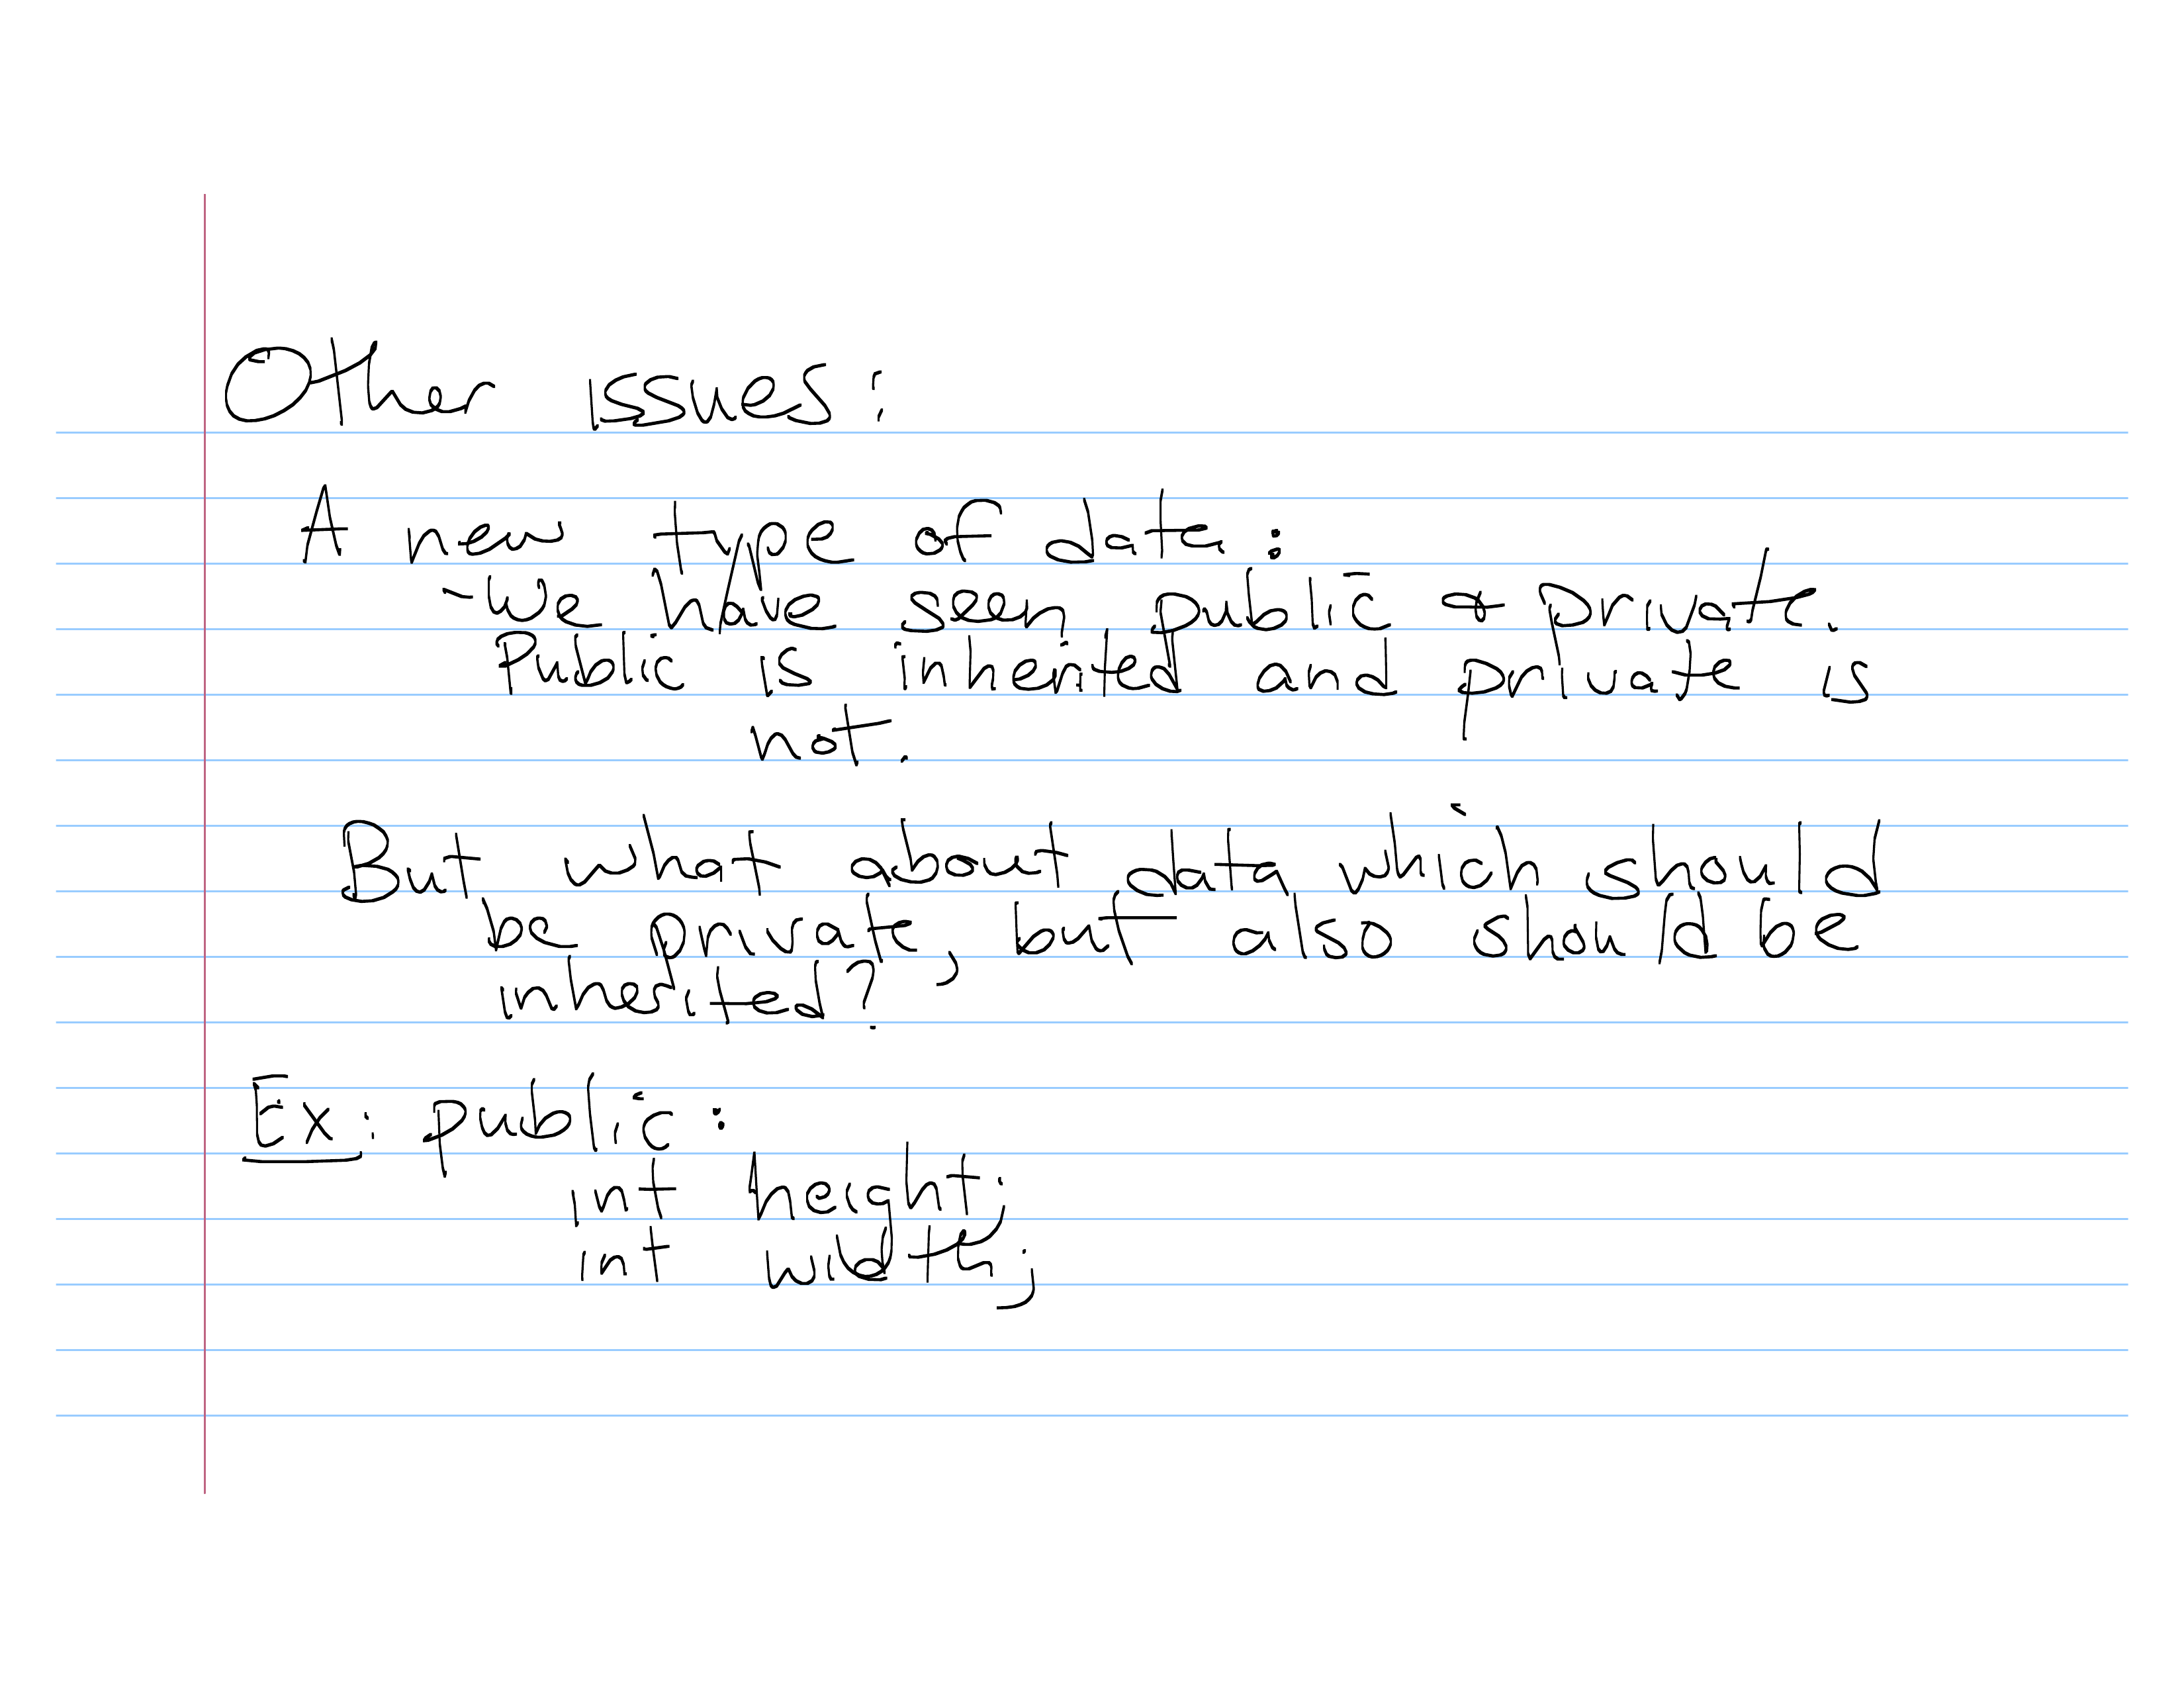 Other issues:
A new type of data:
-We have seen public & private.
Public is inherited and private is
not.
But what about data which should
be private, but also should be
inherited?
Ex: public:
int height;
int width;